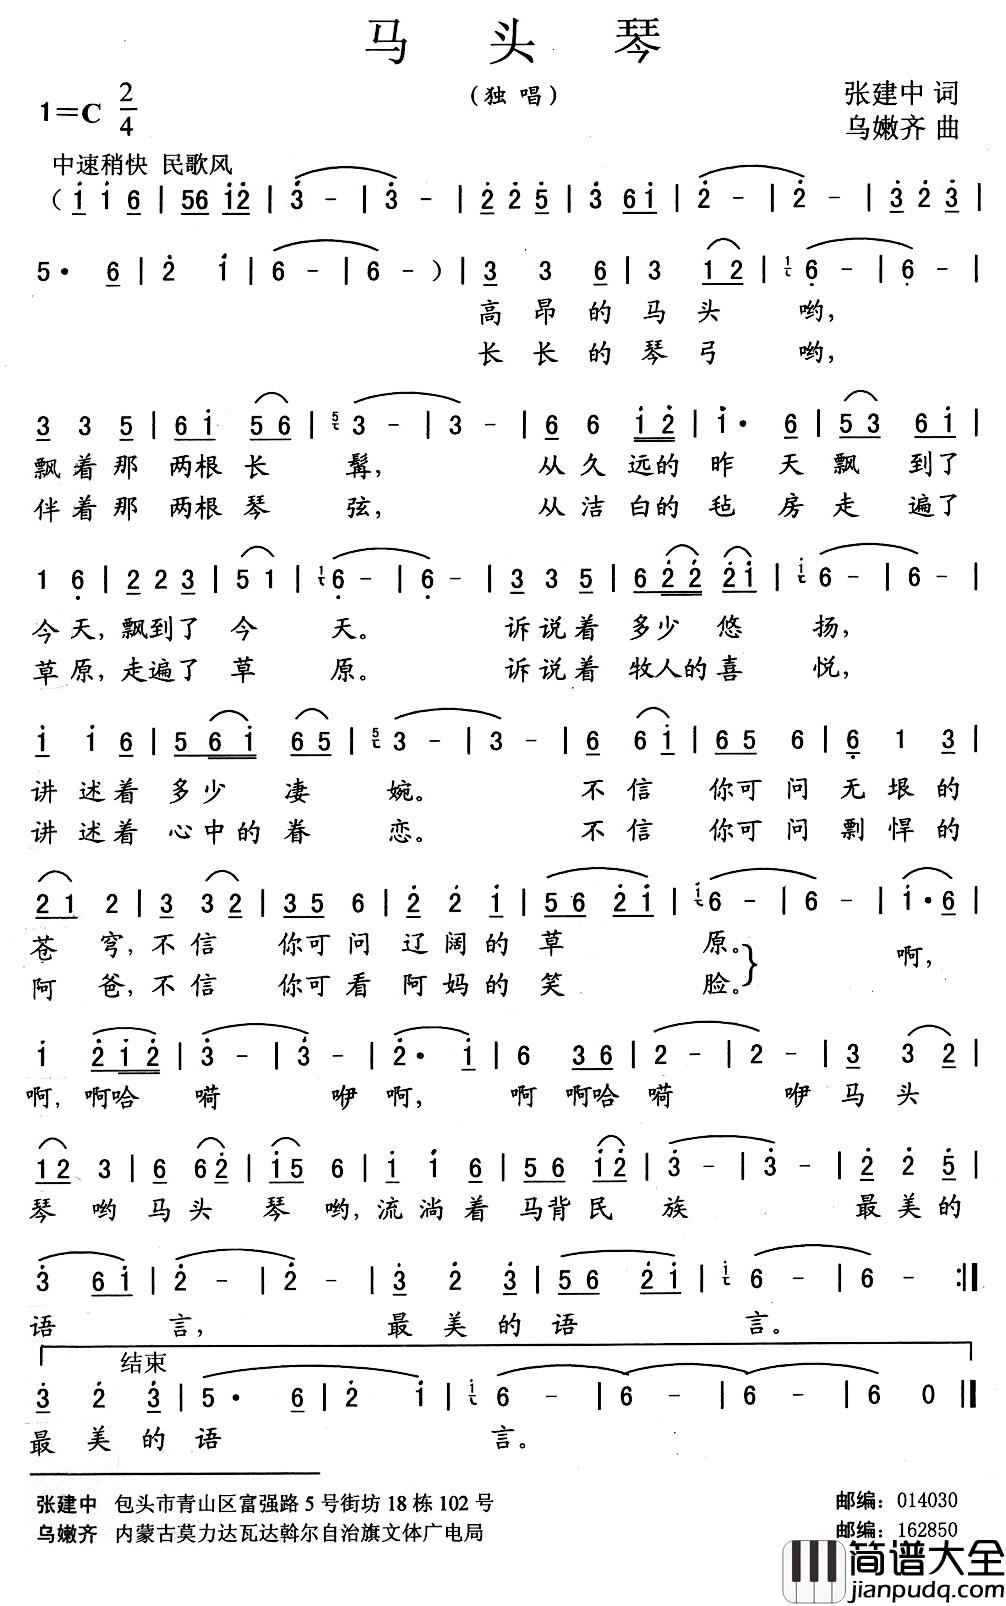 马 头 琴
（独 唱）
1＝C 2/4
张建中 词
乌嫩齐 曲
中速稍快 民歌风
（ i i 6 | 56 i2 | 3 － | 3 － | 2 2 5 | 3 6i | 2 － | 2 － | 3 2 3 |
5· 6 | 2 i | 6 － | 6 － ）| 3 3 6 | 3 12 | 6 － | 6 － |
高 昂 的 马 头 哟，
长 长 的 琴 弓 哟，
3 3 5 | 6i 56 | 3 － | 3 － | 6 6 i2 | i· 6 | 53 6i |
飘 着 那 两根 长 髯， 从 久 远的 昨 天 飘 到了
伴 着 那 两根 琴 弦， 从 洁 白的 毡 房 走 遍了
1 6 | 2 2 3 | 5 1 | 6 － | 6 － | 3 3 5 | 622 2i | 6 － | 6 － |
今 天，飘到了 今 天。 诉说着 多少 悠 扬，
草 原，走遍了 草 原。 诉说着 牧人的 喜 悦，
i i 6 | 56i 65 | 3 － | 3 － | 6 6i | 65 6 | 6 1 3 |
讲 述 着 多少 凄 婉。 不 信 你可 问 无 垠 的
讲 述 着 心中的 眷 恋。 不 信 你可 问 剽 悍 的
21 2 | 3 32 | 35 6 | 2 2 i | 56 2i | 6 － | 6 － | i·6 |
苍 穹，不信 你可问 辽 阔的 草 原。 啊，
阿 爸，不信 你可看 阿 妈的 笑 脸。
i 2i2 | 3 － | 3 － | 2· i | 6 36 | 2 － | 2 － | 3 32 |
啊，啊哈 嗬 咿 啊， 啊 啊哈 嗬 咿 马 头
12 3 | 6 62 | i5 6 | i i 6 | 56 i2 | 3 － | 3 － | 2 2 5 |
琴 哟 马 头 琴 哟，流 淌 着 马背 民 族 最 美 的
3 6i | 2 － | 2 － | 3 2 3 | 56 2i | 6 － | 6 － :||
语 言， 最 美 的 语 言。
结束
3 2 3 | 5· 6 | 2 i | 6 － | 6 － | 6 － | 6 0 ||
最 美 的 语 言。
张建中 包头市青山区富强路 5 号街坊 18 栋 102 号 邮编：014030
乌嫩齐 内蒙古莫力达瓦达斡尔自治旗文体广电局 邮编：162850
简谱大全
jianpudq.com